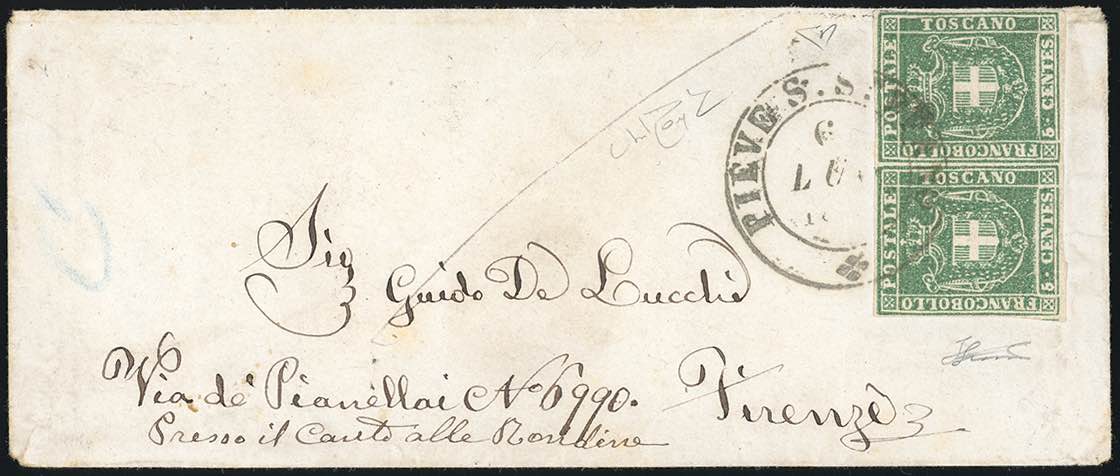 TOSCANO
POSTALE
5 CENTES.
FRANCOBOLLO
TOSCANO
POSTALE
5 CENTES.
FRANCOBOLLO
PIEVE S. S.
6
LUG
18
Sig
Guido De Lucchi
Via de' Pianellai No 6990. Firenze
Presso il Canto alle Rondine